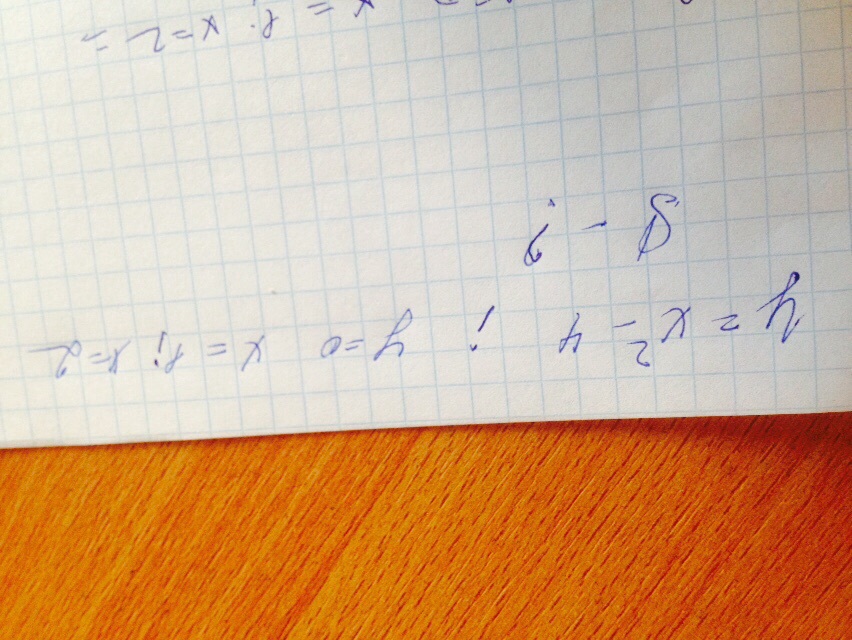 y = x² - 4 ; y = 0 x = 1; x = 2
S - ?
x = 1; x = 2 =